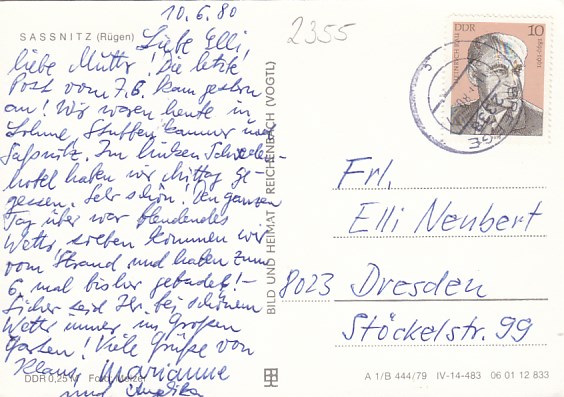 10.6.80
SASSNITZ (Rügen)
Liebe Elli,
liebe Mutti! Die letzte
Post vom 7.6. kam gestern
an! Wir waren heute in
Lohme, Stubbenkammer und
Saßnitz. Im
hotel haben wir Mittag ge-
gessen. Sehr schön! Den ganzen
Tag über war blendendes
Wetter, soeben kommen wir
vom Strand und haben zum
6. mal bisher gebadet! –
Sicher seid Ihr bei schönem
Wetter immer im Großen
Garten! Viele Grüße von
Klaus, Marianne
und Angelika
DDR 0,25 M Foto:
BILD UND HEIMAT REICHENBACH (VOGTL)
2355
DDR 10
Frl.
Elli Neubert
8023 Dresden
Stöckelstr. 99
A 1/B 444/79 IV-14-483 06 01 12 833